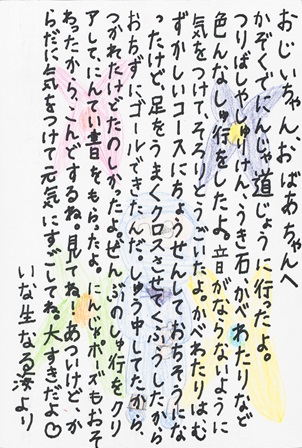 おじいちゃん、おばあちゃんへ
かぞくでにんじゃ道じょうに行だよ。
つりばしやしゅりけん、うき石、かべわたりなど
色んなしゅ行をしたよ。音がならないように
気をつけて、そろりとうごいたよ。かべわたりはむ
ずかしいコースにちょうせんしておちそうにな
ったけど、足をうまくクロスさせてくふうしたから
おちずにゴールできたんだ。しゅう中してたから
つかれたけどたのしかったよ。ぜんぶのしゅ行をクリ
アして、にんてい書をもらったよ。にんじゃポーズもおそ
わったから、こんどするね。見てね。あついけど、か
らだに気をつけて元気にすごしてね。大すきだよ♡
いな生なる海より